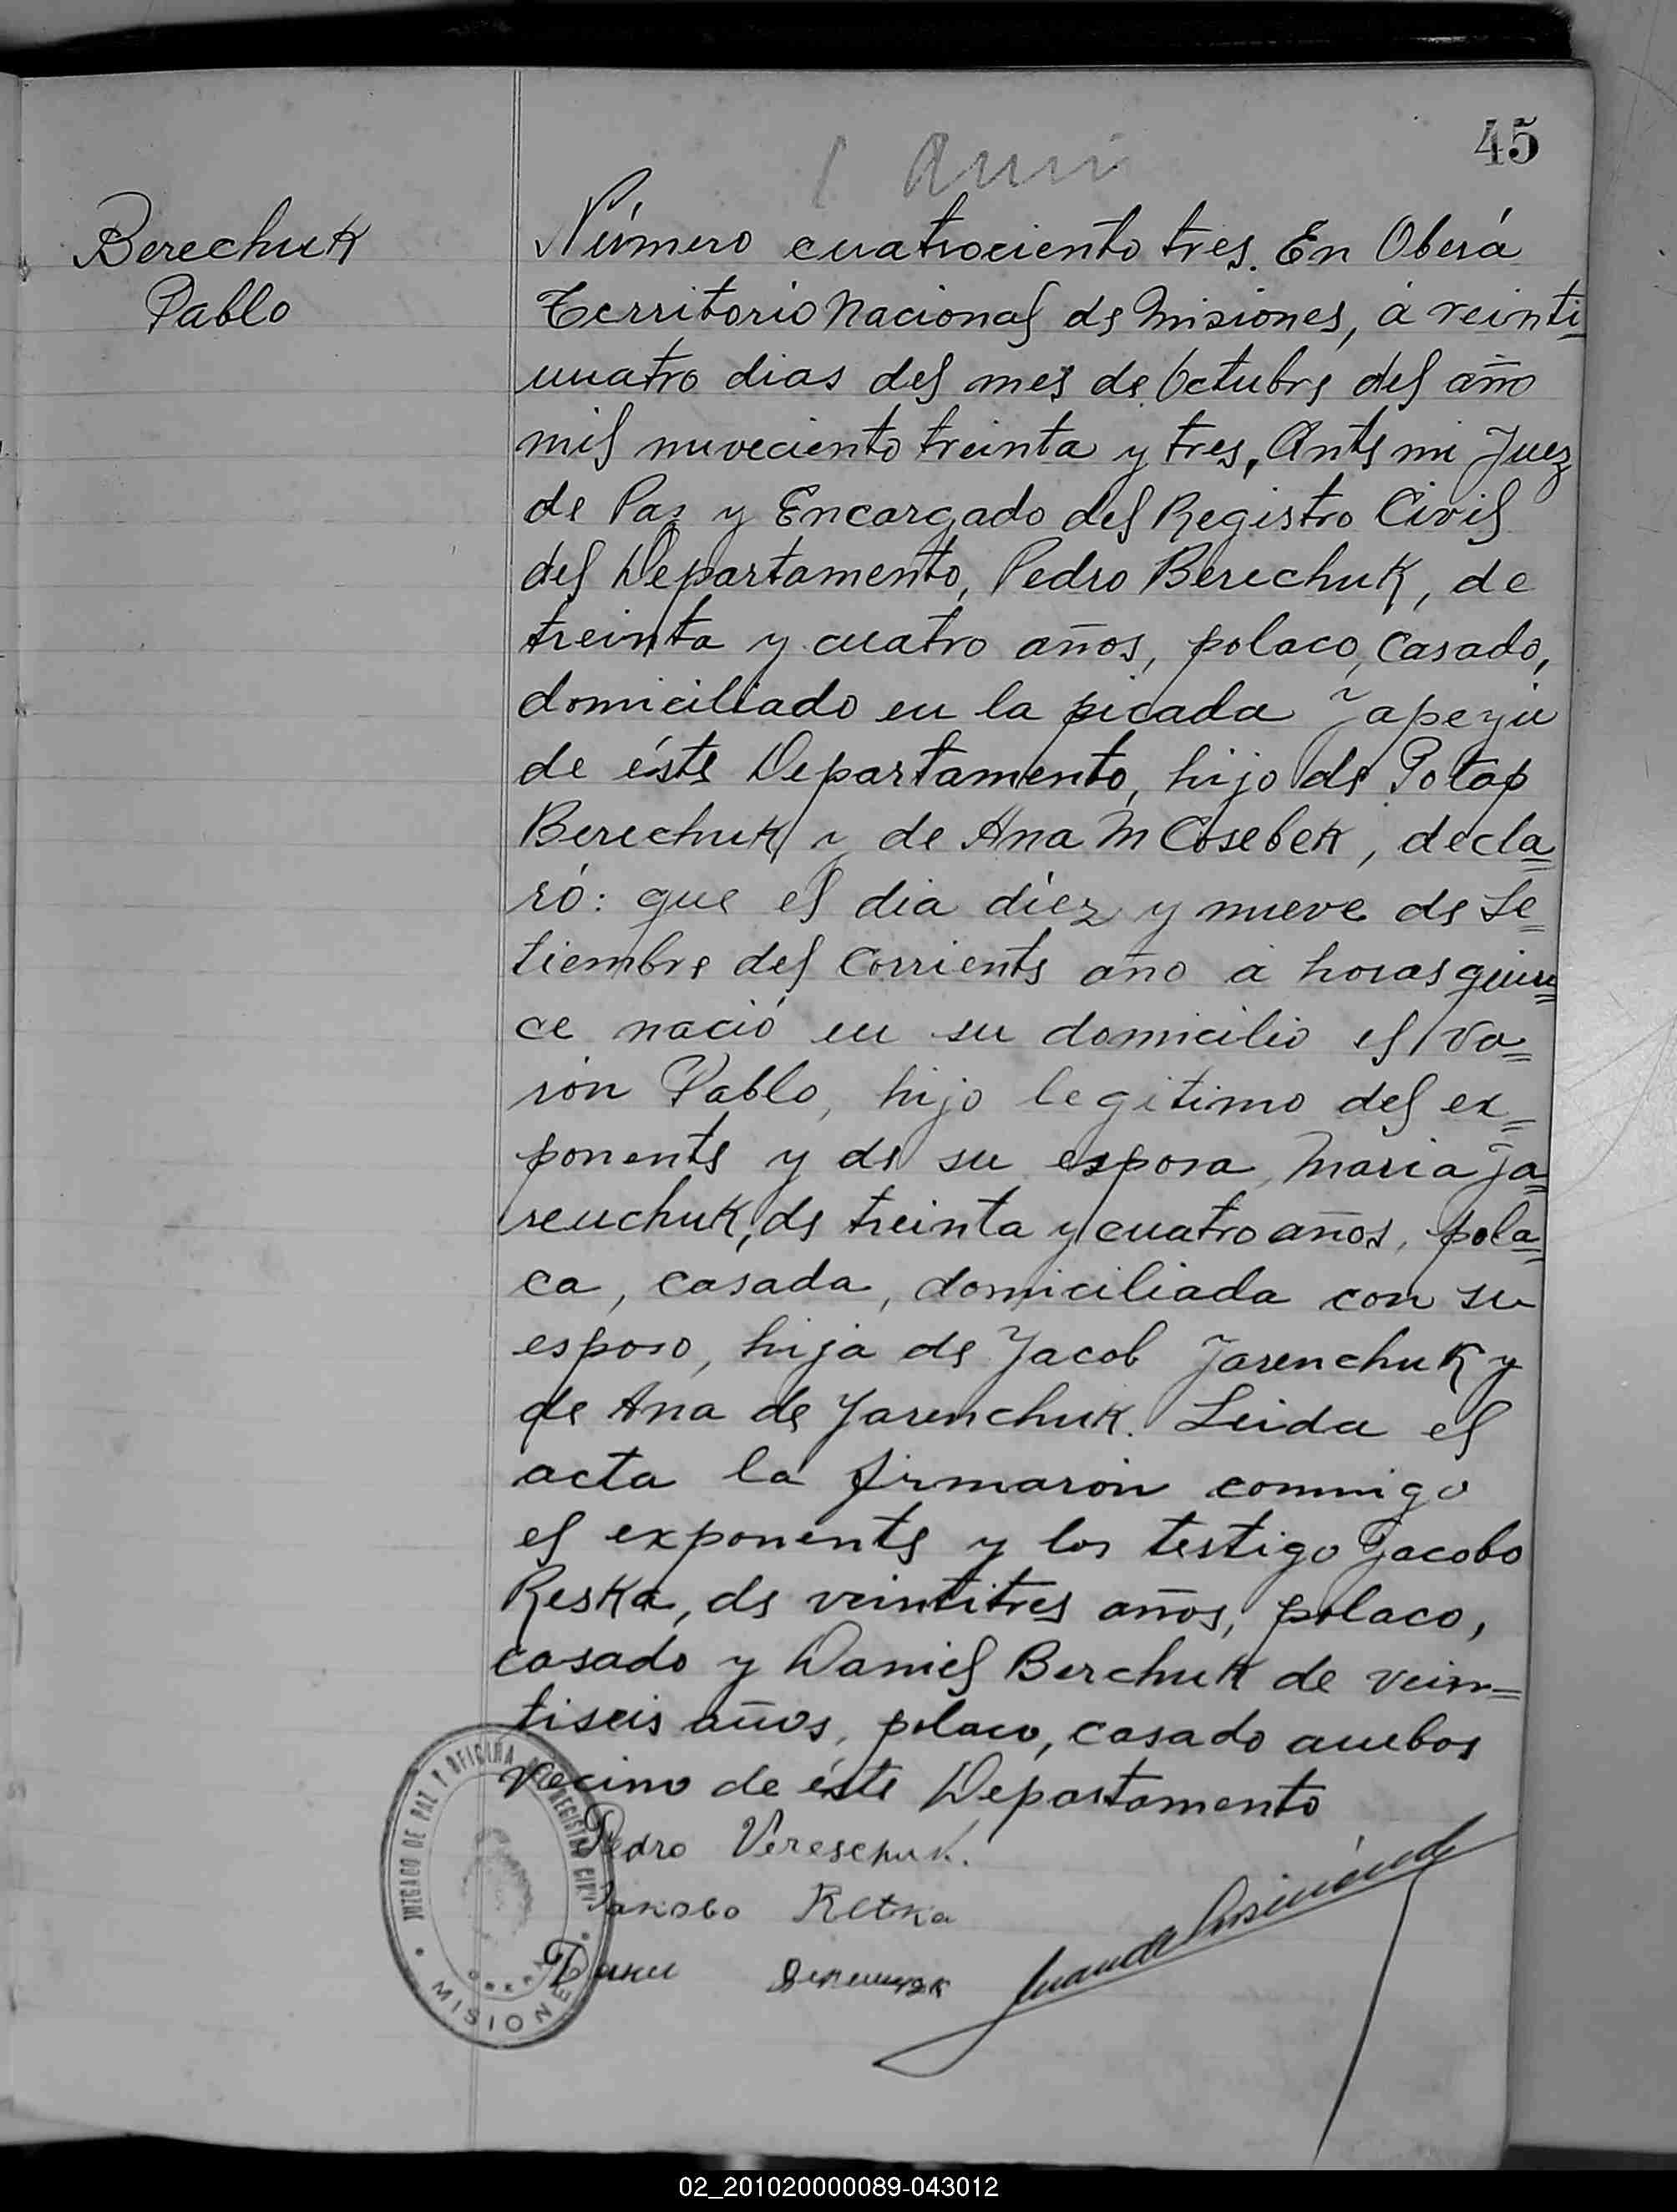 45
Berechuk
Pablo
Número cuatrociento tres. En Oberá
Territorio Nacional de Misiones, á veinti-
cuatro dias del mes de Octubre del año
mil noveciento treinta y tres, Ante mi Juez
de Paz y Encargado del Registro Civil
del Departamento, Pedro Berechuk, de
treinta y cuatro años, polaco, casado,
domiciliado en la picada Yapeyú
de éste Departamento, hijo de Potap
Berechuk y de Ana M Cosebek, decla=
ró: que el dia diez y nueve de Se=
tiembre del corriente año á horas quin=
ce nació en su domicilio el va=
rón Pablo, hijo legitimo del ex=
ponente y de su esposa, Maria Ja=
renchuk, de treinta y cuatro años, pola=
ca, casada, domiciliada con su
esposo, hija de Jacob Jarenchuk y
de Ana de Yarenchuk. Leida el
acta la firmarón conmigo
el exponente y los testigo Jacobo
Reska, de veintitres años, polaco,
casado y Daniel Berchuk de vein=
tiseis años, polaco, casado ambos
vecino de éste Departamento
Pedro Vereschuk.
Jакоbо Retka
JUZGADO DE PAZ Y OFICINA DE REGISTRO CIVIL
OBERA
MISIONES
02_201020000089-043012